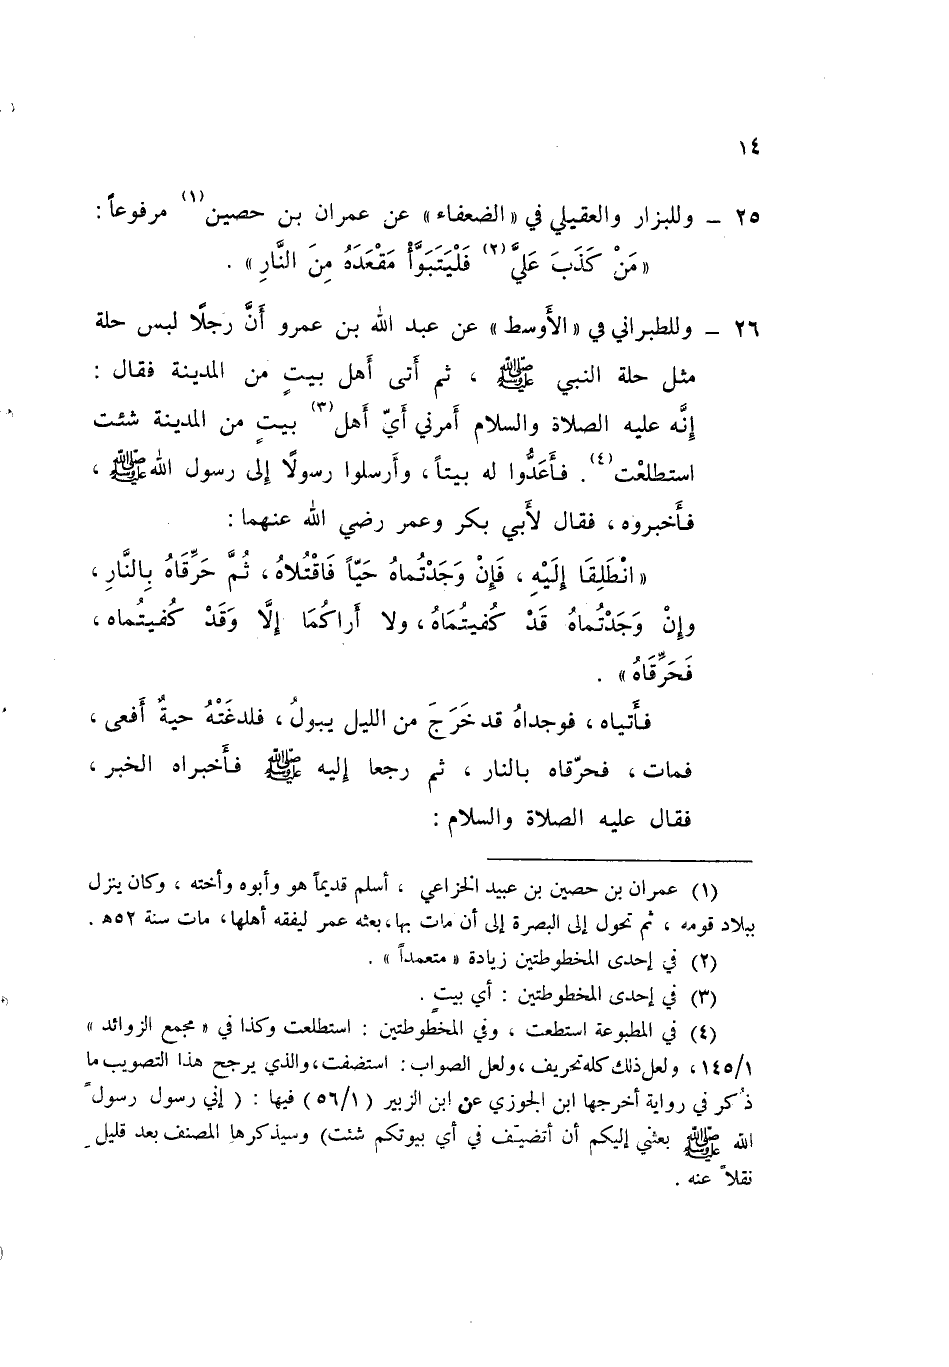 ١٤
٢٥ – وللبزار والعقيلي في «الضعفاء» عن عمران بن حصين(١) مرفوعاً :
«مَنْ كَذَبَ عَلَيَّ(٢) فَلْيَتَبَوَّأْ مَقْعَدَهُ مِنَ النَّارِ» .
٢٦ – وللطبراني في «الأَوسط» عن عبد الله بن عمرو أَنَّ رجلًا لبس حلة
مثل حلة النبي ﷺ ، ثم أَتى أَهل بيتٍ من المدينة فقال :
إِنَّه عليه الصلاة والسلام أَمرني أَيّ أَهل(٣) بيتٍ من المدينة شئت
استطلعْت(٤) . فأَعَدُّوا له بيتاً ، وأَرسلوا رسولًا إِلى رسول الله ﷺ ،
فأَخبروه ، فقال لأَبي بكر وعمر رضي الله عنهما :
«انْطَلِقَا إِلَيْهِ ، فَإِنْ وَجَدْتُماهُ حَيّاً فَاقْتُلاهُ ، ثُمَّ حَرِّقَاهُ بِالنَّارِ ،
وإِنْ وَجَدْتُماهُ قَدْ كُفيتُمَاهُ ، ولا أَراكُمَا إِلَّا وَقَدْ كُفيتُماه ،
فَحَرِّقَاهُ» .
فأَتياه ، فوجداهُ قد خَرَجَ من الليل يبولُ ، فلدغَتْهُ حيةٌ أَفعى ،
فمات ، فحرّقاه بالنار ، ثم رجعا إِليه ﷺ فأَخبراه الخبر ،
فقال عليه الصلاة والسلام :
(١) عمران بن حصين بن عبيد الخزاعي ، أسلم قديماً هو وأبوه وأخته ، وكان ينزل
ببلاد قومه ، ثم تحول إلى البصرة إلى أن مات بها ، بعثه عمر ليفقه أهلها ، مات سنة ٥٢ه .
(٢) في إحدى المخطوطتين زيادة «متعمداً» .
(٣) في إحدى المخطوطتين : أي بيتٍ .
(٤) في المطبوعة استطعت ، وفي المخطوطتين : استطلعت وكذا في «مجمع الزوائد»
١٤٥/١ ، ولعل ذلك كله تحريف ، ولعل الصواب : استضفت ، والذي يرجح هذا التصويب ما
ذُكر في رواية أخرجها ابن الجوزي عن ابن الزبير (٥٦/١) فيها : (إني رسول رسول
الله ﷺ بعثني إليكم أن أتضيّف في أي بيوتكم شئت) وسيذكرها المصنف بعد قليل
نقلاً عنه .